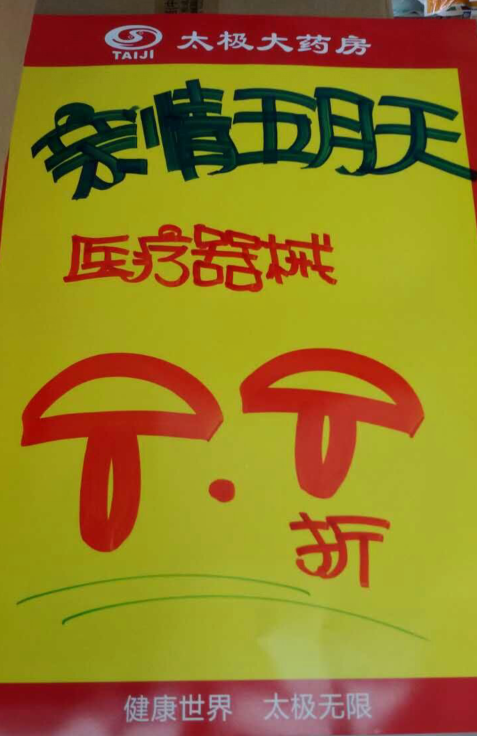 TAIJI 太极大药房
亲情五月天
医疗器械
7.7折
健康世界 太极无限